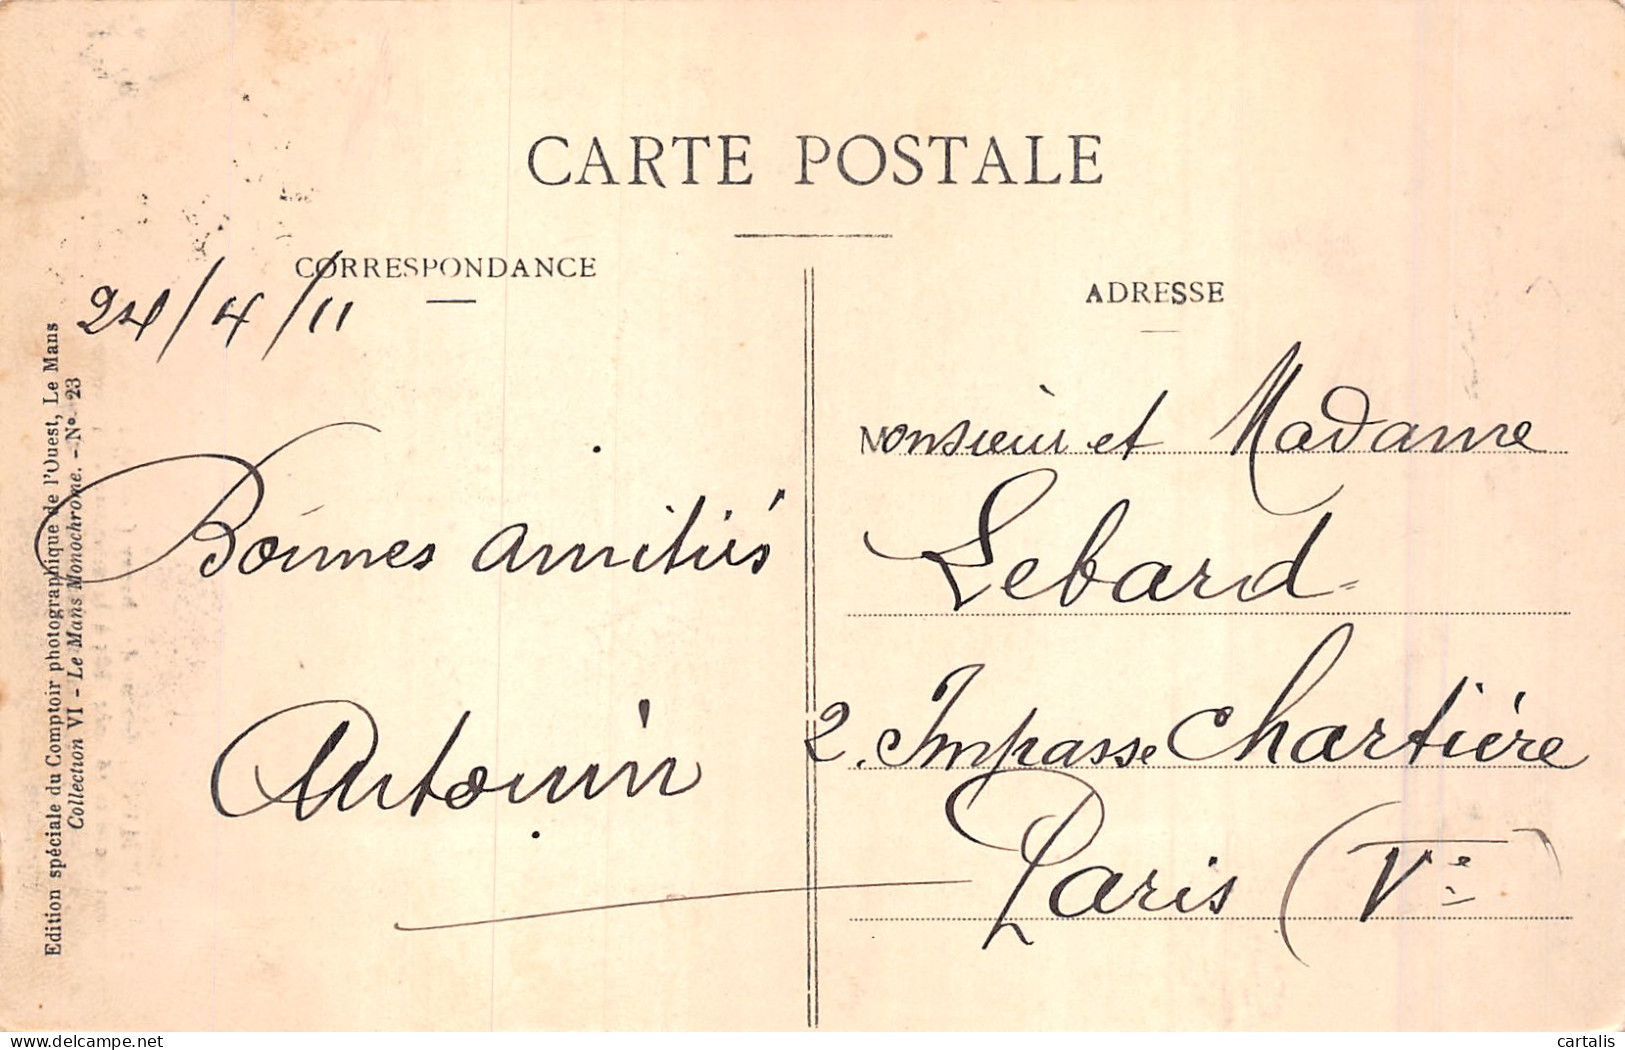 CARTE POSTALE
CORRESPONDANCE
24/4/11
Bonnes amitiés
Antonin
ADRESSE
Monsieur et Madame
Lebard
2. Impasse Chartière
Paris (Ve)
Edition spéciale du Comptoir photographique de l'Ouest, Le Mans
Collection VI - Le Mans Monochrome. - N° 23
delcampe.net
cartalis